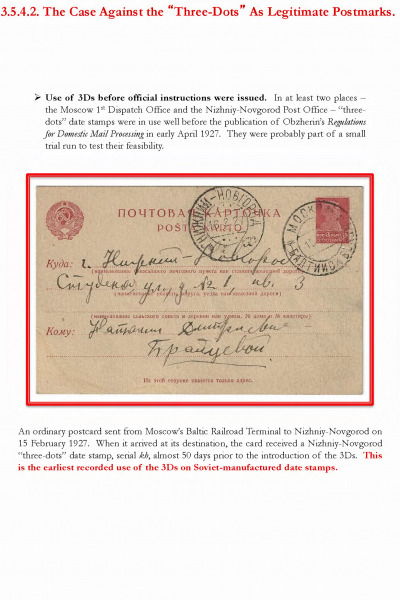 3.5.4.2. The Case Against the “Three-Dots” As Legitimate Postmarks.
➢ Use of 3Ds before official instructions were issued. In at least two places –
the Moscow 1st Dispatch Office and the Nizhniy-Novgorod Post Office – “three-
dots” date stamps were in use well before the publication of Obzherin’s Regulations
for Domestic Mail Processing in early April 1927. They were probably part of a small
trial run to test their feasibility.
ПОЧТОВАЯ КАРТОЧКА
НОВГОРОД
МОСКВА
Куда: г. Нижний-Новгород
Студеная ул. д. № 1, кв. 3
Кому: Наталии Дмитриевне
На этой стороне пишется только адрес.
An ordinary postcard sent from Moscow’s Baltic Railroad Terminal to Nizhniy-Novgorod on
15 February 1927. When it arrived at its destination, the card received a Nizhniy-Novgorod
“three-dots” date stamp, serial kh, almost 50 days prior to the introduction of the 3Ds. This
is the earliest recorded use of the 3Ds on Soviet-manufactured date stamps.